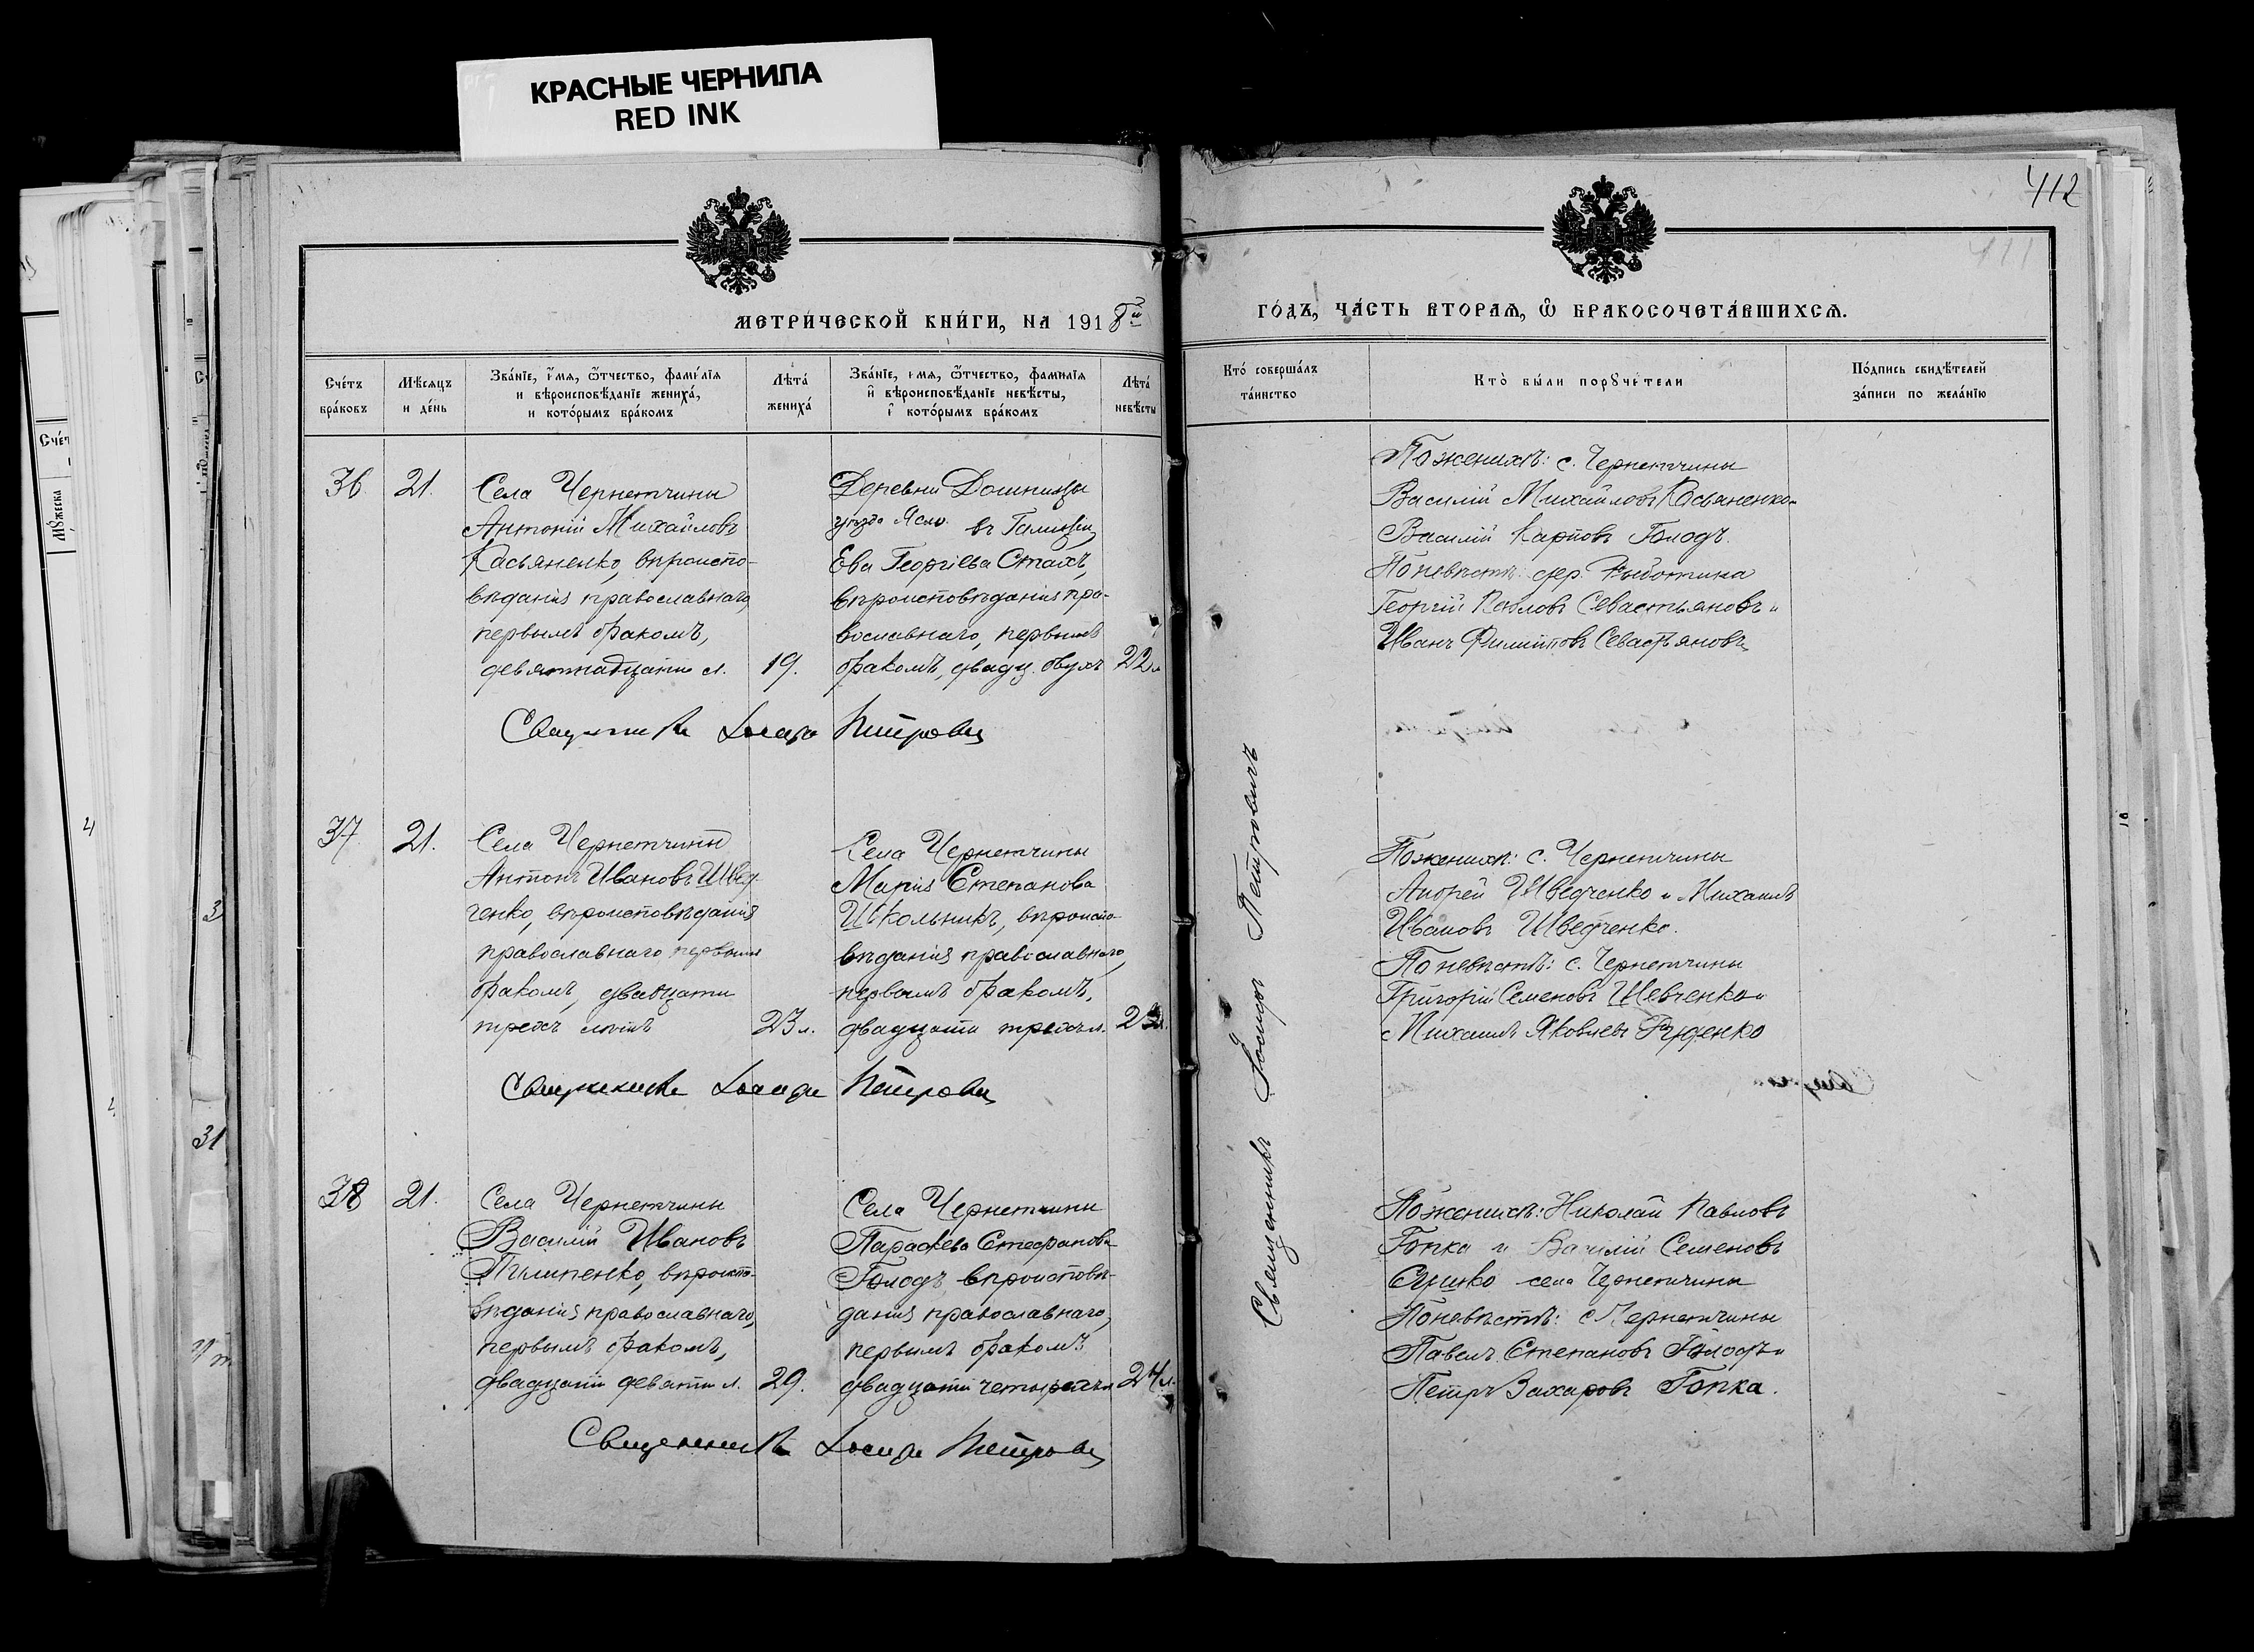 КРАСНЫЕ ЧЕРНИЛА
RED INK
412
411
МЕТРИ́ЧЕСКОЙ КНИ́ГИ, НА 1918й
ГО́ДЪ, ЧА́СТЬ ВТОРАѦ, Ѽ БРАКОСОЧЕТА́ВШИХСѦ.
Сче́тъ бра́ковъ
Мѣ́сяцъ и де́нь
Зва́нїе, и́мѧ, ѻ҆́тчество, фами́лїѧ и вѣроисповѣ́данїе жениха́, и кото́рымъ бра́комъ
Лѣта́ жениха́
Зва́нїе, и́мѧ, ѻ҆́тчество, фами́лїѧ и вѣроисповѣ́данїе невѣ́сты, и кото́рымъ бра́комъ
Лѣта́ невѣ́сты
Кто́ соверша́лъ та́инство
Кто̀ бы́ли порꙋчи́тели
По́дпись свидѣ́телей за́писи по жела́нїю
36.
21.
Села Чернетчины
Антоній Михайловъ
Касьяненко, вѣроиспо-
вѣданія православнаго,
первымъ бракомъ,
девятнадцати л.
19.
Деревни
въ Галиціи
Ева Георгіева Стахъ,
вѣроисповѣданія пра-
вославнаго, первымъ
бракомъ, двадц. двухъ
22 л
По женихѣ: с. Чернетчины
Василій Михайловъ Касьяненко и
Василій Карповъ Голодъ.
По невѣстѣ: дер.
Георгій Павловъ Севастьяновъ и
Иванъ Филипповъ Севастьяновъ
Священникъ Іосифъ Петровичъ
37.
21.
Села Чернетчины
Антонъ Ивановъ Швед-
ченко, вѣроисповѣданія
православнаго первымъ
бракомъ, двадцати
трехъ лѣтъ
23 л.
Села Чернетчины
Марія Степанова
Школьникъ, вѣроиспо-
вѣданія православнаго,
первымъ бракомъ,
двадцати трехъ л.
23 л.
По женихѣ: с. Чернетчины
Андрей Шведченко и Михаилъ
Ивановъ Шведченко.
По невѣстѣ: с. Чернетчины
Григорій Семеновъ Шевченко и
Михаилъ Яковлевъ Руденко
Священникъ Іосифъ Петровичъ
38
21.
Села Чернетчины
Василій Ивановъ
Пилипенко, вѣроиспо-
вѣданія православнаго,
первымъ бракомъ,
двадцати девяти л.
29.
Села Чернетчины
Параскева Стефанова
Голодъ вѣроисповѣ-
данія православнаго,
первымъ бракомъ
двадцати четырехъ л
24 л.
По женихѣ: Николай Павловъ
Гопка и Василій Семеновъ
села Чернетчины
По невѣстѣ: с. Чернетчины
Павелъ Степановъ Голодъ и
Петръ Захаровъ Гопка.
Священникъ Іосифъ Петровичъ
Священникъ Іосифъ Петровичъ